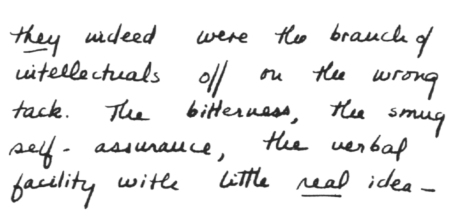 they indeed were the branch of
intellectuals off on the wrong
tack. The bitterness, the smug
self-assurance, the verbal
facility with little real idea—